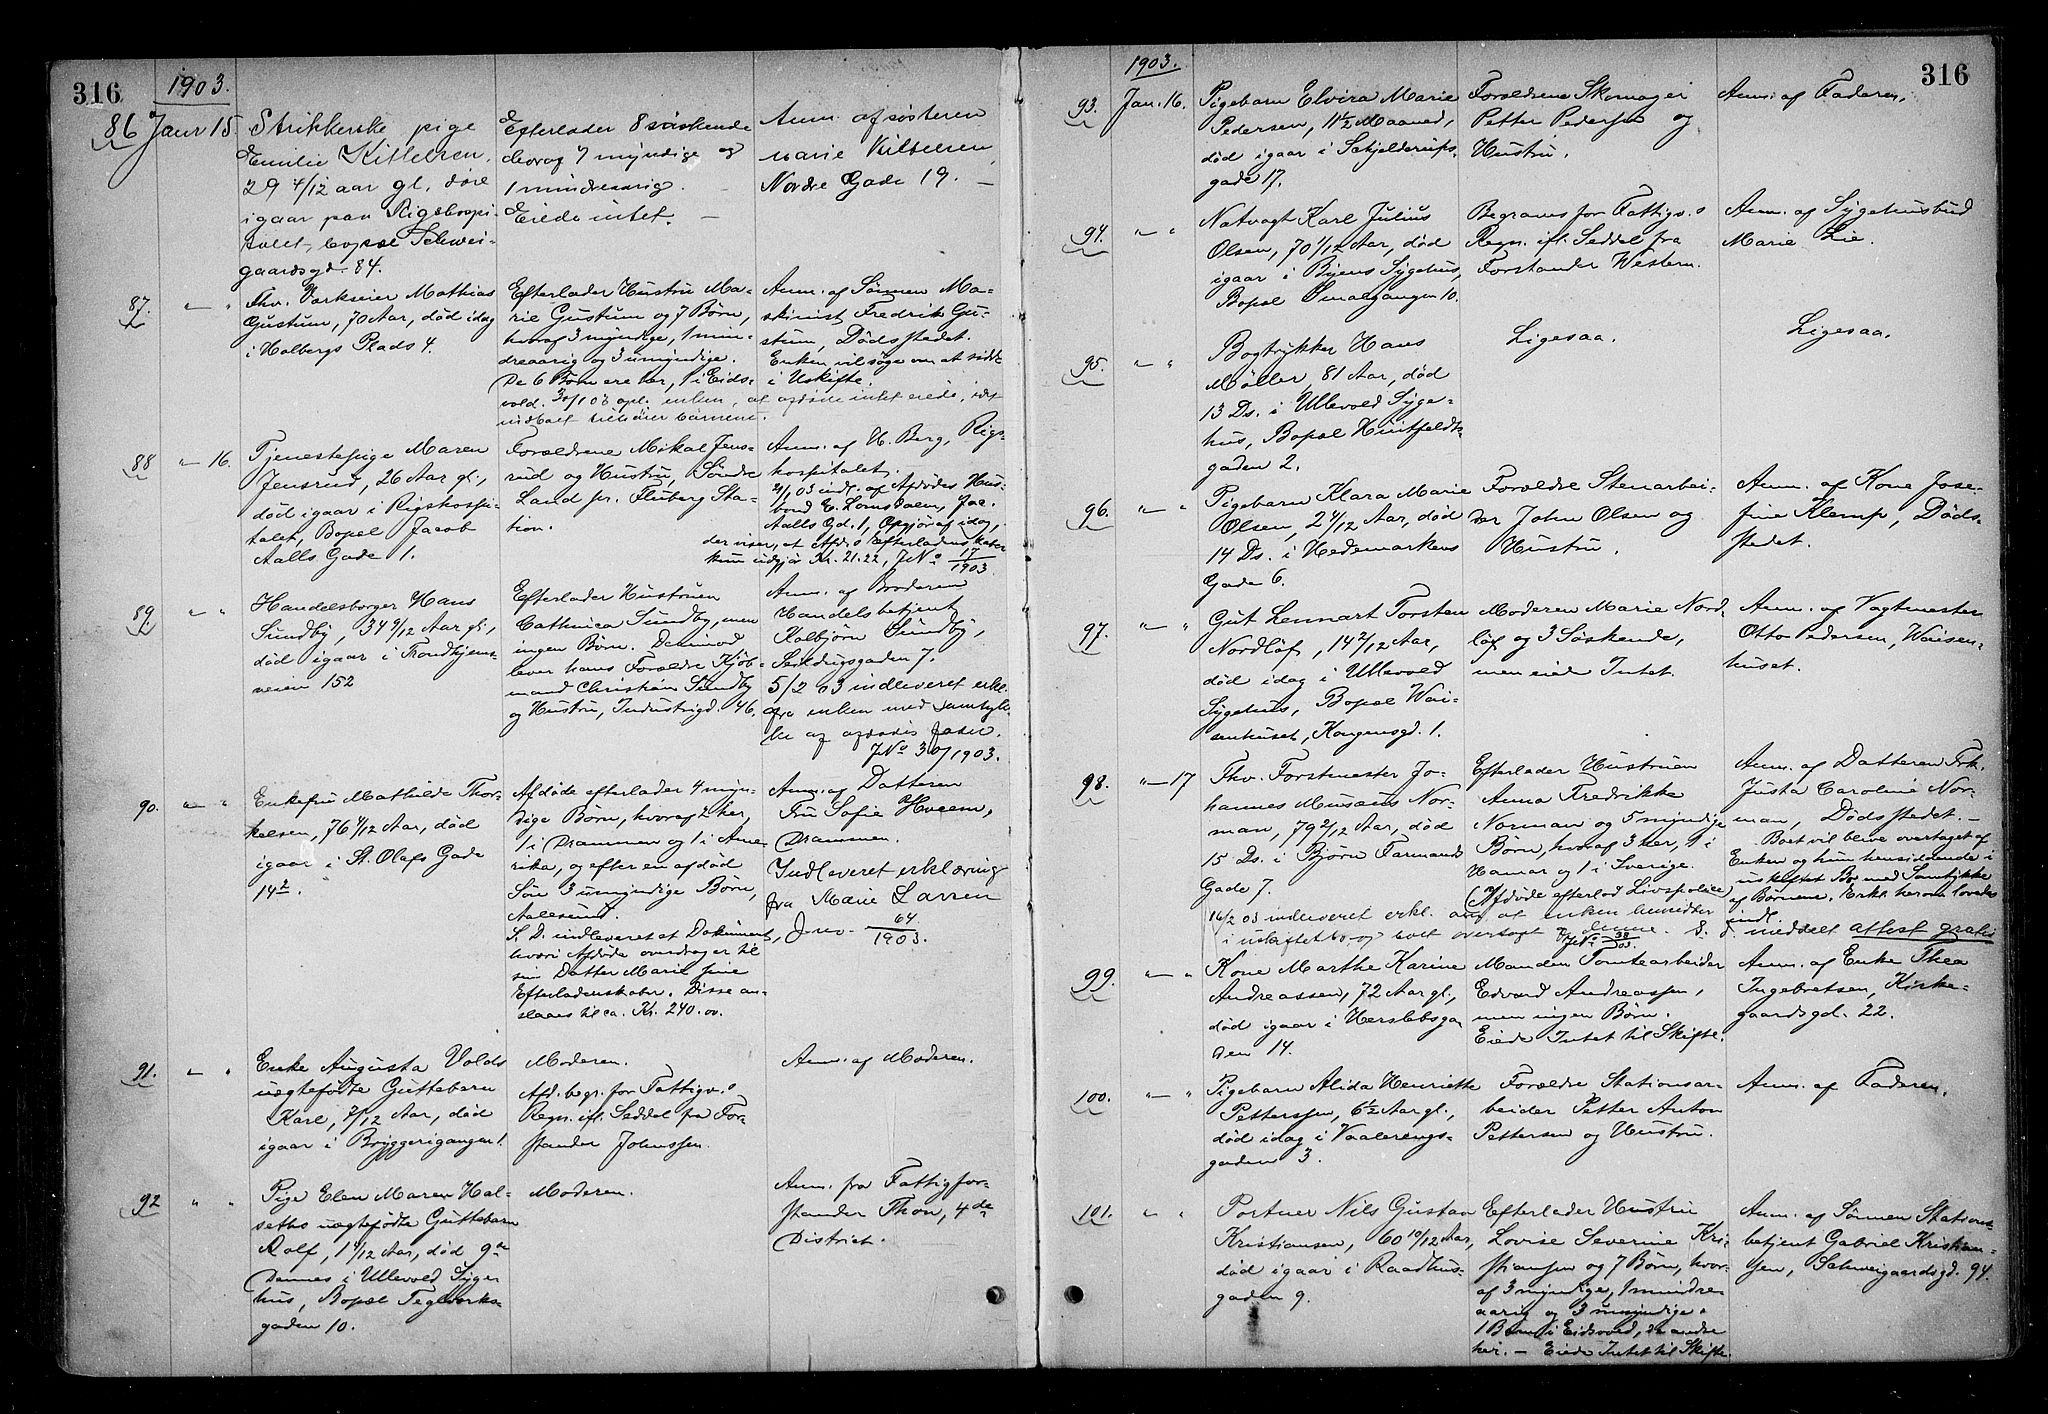 316
1903.
86 Janr 15.
Strikkerske pige
Emilie Kittelsen,
29 4/12 aar gl. døde
igaar paa Rigshospi-
talet, bopæl Schwei-
gaardsgd. 84.
Efterlader 8 søskende
hvoraf 7 myndige og
1 mindreaarig.
Eiede intet. —
Anm. af søsteren
Marie Kittelsen,
Nordre Gade 19. —
87. — "
Fhv. Værkseier Mathias
Gustum, 70 Aar, død idag
i Holbergs Plads 4.
Efterlader Hustru Ma-
rie Gustum og 7 Børn,
hvoraf 3 myndige, 1 min-
dreaarig og 3 umyndige.
De 6 Børn ere her, 1 i Eids-
vold. 30/1 03 opl. enken, at afdøde intet eiede, idet
indboet tilhører børnene.
Anm. af Sønnen Ma-
skinist Fredrik Gu-
stum, Dødsstedet.
Enken vil søge om at sidde
i Uskifte.
88 — 16.
Tjenestepige Maren
Jensrud, 26 Aar gl.,
død igaar i Rigshospi-
talet, Bopæl Jacob
Aalls Gade 1.
Forældrene Mikal Jens-
rud og Hustru, Søndre
Land pr. Fluberg Sta-
tion.
Anm. af H. Berg, Rigs-
hospitalet.
21/1 03 indl. af Afdødes Hus-
bond E. Lomsdalen, Jac.
Aalls Gd. 1, Opgjør af idag,
der viser, at Afdø.s Efterladenskaber
kun udgjør Kr. 21.22, JNo 17/1903.
89. " "
Handelsborger Hans
Sundby, 34 9/12 Aar gl.,
død igaar i Trondhjems-
veien 152
Efterlader Hustruen
Cathinca Sundby, men
ingen Børn. Derimod
lever hans Forældre Kjøb-
mand Christian Sundby
og Hustru, Industrigd. 46.
Anm. af Broderen
Handelsbetjent
Kolbjørn Sundby,
Seildugsgaden 7.
5/2 03 indleveret erkl.
fra enken med samtyk-
ke af afdødes fader.
JNo 30/1903.
90. " "
Enkefru Mathilde Thor-
kelsen, 76 4/12 Aar, død
igaar i St. Olafs Gade
14².
Afdøde efterlader 4 myn-
dige Børn, hvoraf 2 her,
1 i Drammen og 1 i Ame-
rika, og efter en afdød
Søn 3 umyndige Børn,
Aalesund.
S. D. indleveret et Dokument,
hvori Afdøde overdrager til
sin Datter Marie sine
Efterladenskaber. Disse an-
slaaes til ca. Kr. 240.00.
Anm. af Datteren
Fru Sofie Hveem,
Drammen.
Indleveret erklæring
fra Marie Larsen
Jno. 64/1903.
91. — "
Enke Augusta Volds
uægtefødte Guttebarn
Karl, 7/12 Aar, død
igaar i Bryggerigangen 1.
Moderen.
Afd. begr. for Fattigv.s
Regn. ifl. Seddel fra For-
stander Johnssen.
Anm. af Moderen.
92 " "
Pige Elen Maren Hal-
seths uægtefødte Guttebarn
Rolf, 1 4/12 Aar, død 9de
Dennes i Ullevold Syge-
hus, Bopæl Teglverks-
gaden 10.
Moderen.
Anm. fra Fattigfor-
stander Thon, 4de
District.
316
1903.
93. Jan. 16.
Pigebarn Elvira Marie
Pedersen, 11½ Maaned,
død igaar i Schjelderups-
gade 17.
Forældrene Skomager
Petter Pedersen og
Hustru.
Anm. af Faderen.
94. " "
Natvagt Karl Julius
Olsen, 70 1/12 Aar, død
igaar i Byens Sygehus,
Bopæl Smaagangen 10.
Begraves for Fattigv.s
Regn. ifl. Seddel fra
Forstander Western.
Anm. af Sygehusbud
Marie Lie.
95. " "
Bogtrykker Hans
Møller, 81 Aar, død
13 Ds. i Ullevold Syge-
hus, Bopæl Huitfeldts-
gaden 2.
Ligesaa.
Ligesaa.
96. — "
Pigebarn Klara Marie
Olsen, 2 4/12 Aar, død
14 Ds. i Hedemarkens
Gade 6.
Forældre Stenarbei-
der John Olsen og
Hustru.
Anm. af Kone Jose-
fine Klemp, Døds-
stedet.
97. — "
Gut Lennart Torsten
Nordløf, 14 2/12 Aar,
død idag i Ullevold
Sygehus, Bopæl Wai-
senhuset, Kongensgd. 1.
Moderen Marie Nord-
løf og 3 Søskende,
men eiede Intet.
Anm. af Vagtmester
Otto Pedersen, Waisen-
huset.
98. — 17
Fhv. Forstmester Jo-
hannes Musæus Nor-
man, 79 2/12 Aar, død
15 Ds. i Bjørn Farmands
Gade 7.
Efterlader Hustruen
Anna Fredrikke
Norman og 5 myndige
Børn, hvoraf 3 her, 1 i
Hamar og 1 i Sverige.
(Afdøde efterlod Livspolice)
Anm. af Datteren Frk.
Justa Caroline Nor-
man, Dødsstedet. —
Boet vil blive overtaget af
Enken og hun hensiddende i
uskiftet Bo med Samtykke
af Børnene. Erkl. herom loves
indl.
16/2 03 indleveret erkl. om at enken hensidder
i uskiftet bo og boet overtaget af denne. S. D. meddelt attest gratis
JNo 38/03.
99. — "
Kone Marthe Karine
Andreassen, 72 Aar gl.,
død igaar i Herslebsga-
den 14.
Manden Tomtearbeider
Edvard Andreassen,
men ingen Børn.
Eiede Intet til Skifte.
Anm. af Enke Thea
Ingebretsen, Kirke-
gaardsgd. 22.
100. — "
Pigebarn Alida Henriette
Petterssen, 6½ Aar gl.,
død idag i Vaalerengs-
gaden 3.
Forældre Stationsar-
beider Petter Anton
Pettersen og Hustru.
Anm. af Faderen.
101. " "
Portner Nils Gustav
Kristiansen, 60 10/12 Aar,
død igaar i Raadhus-
gaden 9.
Efterlader Hustru
Lovise Severine Kri-
stiansen og 7 Børn, hvor-
af 3 myndige, 1 mindre-
aarig og 3 umyndige.
1 Barn i Eidsvold, de andre
her. — Eiede Intet til Skifte.
Anm. af Sønnen Stations-
betjent Gabriel Kristian-
sen, Schweigaardsgd. 94.